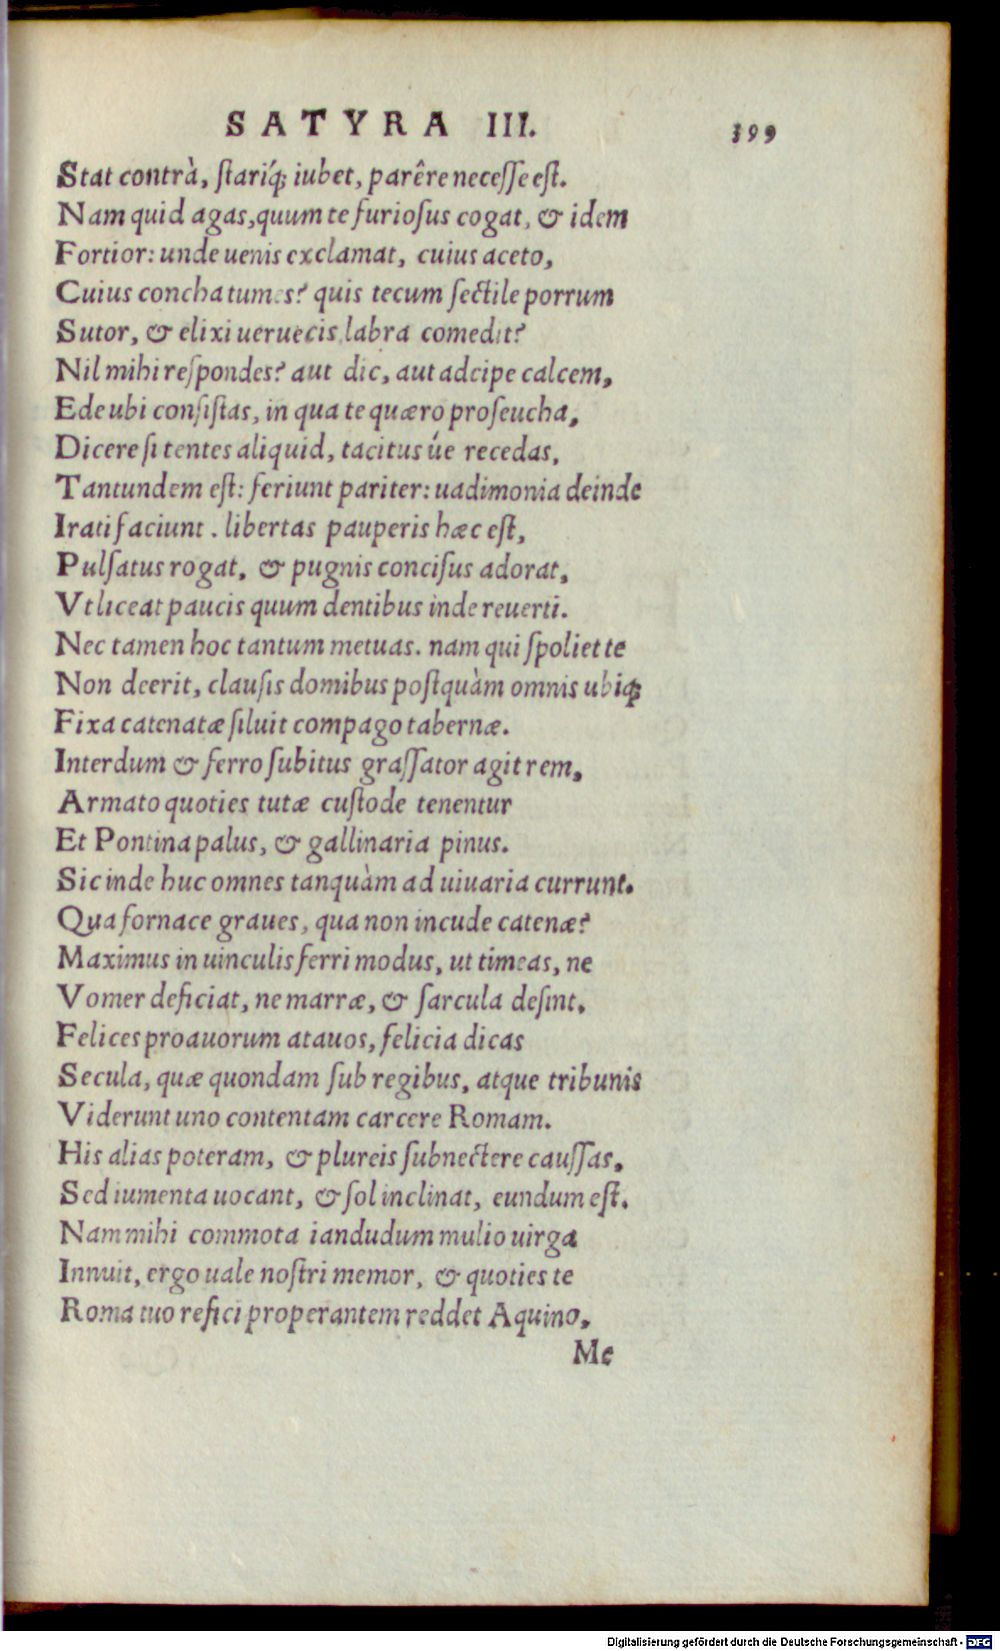 SATYRA III. 399
Stat contrà, ſtariq́; iubet, parêre neceſſe eſt.
Nam quid agas, quum te furioſus cogat, & idem
Fortior: unde uenis exclamat, cuius aceto,
Cuius concha tumes? quis tecum ſectile porrum
Sutor, & elixi ueruecis labra comedit?
Nil mihi reſpondes? aut dic, aut adcipe calcem,
Ede ubi conſiſtas, in qua te quæro proſeucha,
Dicere ſi tentes aliquid, tacitus úe recedas,
Tantundem eſt: feriunt pariter: uadimonia deinde
Irati faciunt. libertas pauperis hæc eſt,
Pulſatus rogat, & pugnis conciſus adorat,
Vt liceat paucis quum dentibus inde reuerti.
Nec tamen hoc tantum metuas. nam qui ſpoliet te
Non deerit, clauſis domibus poſtquàm omnis ubiq;
Fixa catenatæ ſiluit compago tabernæ.
Interdum & ferro ſubitus graſſator agit rem,
Armato quoties tutæ cuſtode tenentur
Et Pontina palus, & gallinaria pinus.
Sic inde huc omnes tanquàm ad uiuaria currunt.
Qua fornace graues, qua non incude catenæ?
Maximus in uinculis ferri modus, ut timeas, ne
Vomer deficiat, ne marræ, & ſarcula deſint.
Felices proauorum atauos, felicia dicas
Secula, quæ quondam ſub regibus, atque tribunis
Viderunt uno contentam carcere Romam.
His alias poteram, & plureis ſubnectere cauſſas,
Sed iumenta uocant, & ſol inclinat, eundum eſt.
Nam mihi commota iandudum mulio uirga
Innuit, ergo uale noſtri memor, & quoties te
Roma tuo refici properantem reddet Aquino,
Me
Digitalisierung gefördert durch die Deutsche Forschungsgemeinschaft - DFG